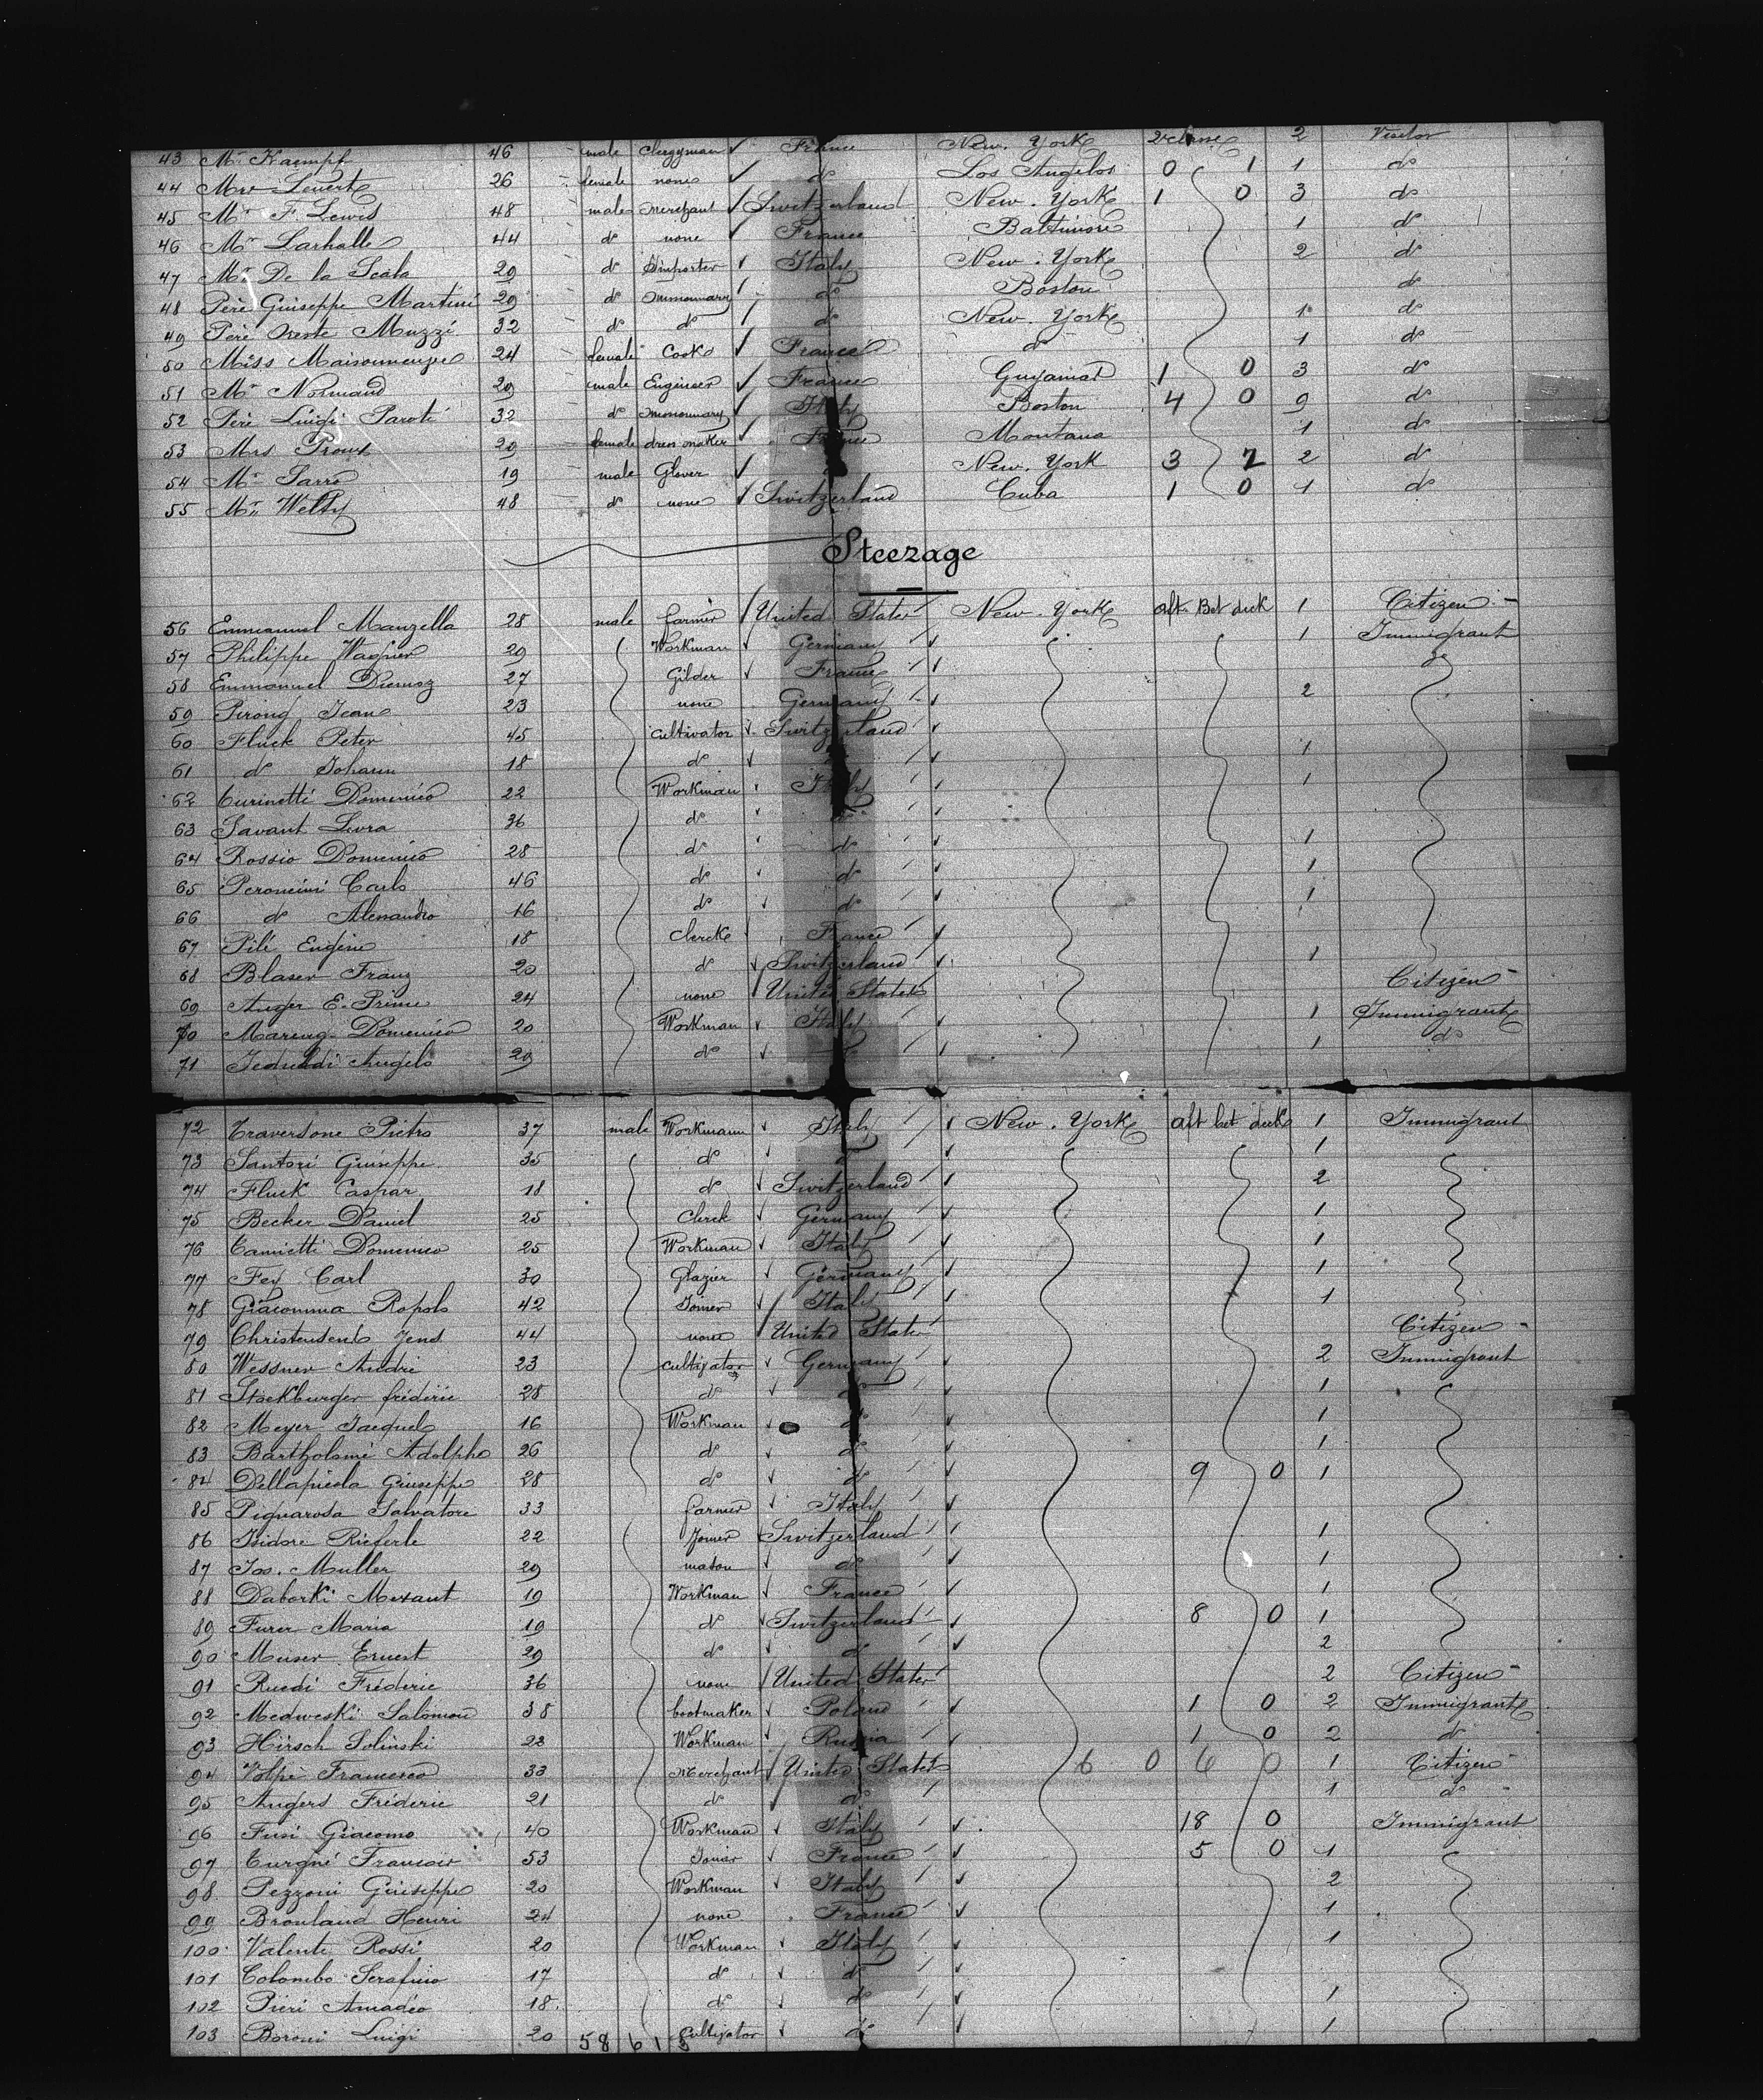 43 Mr Kaempf 46 male Clergyman France New. York 2d classe 2 Visitor
44 Mrs Levert 26 female none do Los Angelos 0 1 1 do
45 Mr F. Lewis 48 male merchant Switzerland New. York 1 0 3 do
46 Mr Larhalle 44 do none France Baltimore 1 do
47 Mr De la Scala 29 do Importer Italy New. York 2 do
48 Père Guiseppe Martini 29 do missionnary do Boston do
49 Père Oreste Muzzi 32 do do do New. York 1 do
50 Miss Maisonneuve 24 female Cook France do 1 do
51 Mr Normand 29 male Engineer France 1 0 3 do
52 Père Luigi Paroti 32 do missionnary Italy Boston 4 0 9 do
53 Mrs Proux 29 female dress maker France Montana 1 do
54 Mr Sarro 19 male Glover do New. York 3 7 2 do
55 Mr Welty 48 do none Switzerland Cuba 1 0 1 do
Steezage
56 Emmanuel Manzella 28 male farmer United States New. York aft Bet deck 1 Citizen
57 Philippe Wagner 29 Workman Germany 1 Immigrant
58 Emmanuel Diemoz 27 Gilder France do
59 Piroud Jean 23 none Germany 2
60 Fluck Peter 45 cultivator Switzerland
61 do Johann 18 do 1
62 Curinetti Domenico 22 Workman Italy 1
63 Savant Levra 36 do do
64 Rossio Domenico 28 do do 1
65 Peroncini Carlo 46 do do 1
66 do Alessandro 16 do do 1
67 Pilé Eugène 18 clerck France
68 Blaser Franz 20 do Switzerland 1
69 Auger E. Prime 24 none United States Citizen
70 Mareng Domenico 20 Workman Italy 1 Immigrant
71 Angelo 29 do 1 do
72 Traversone Pietro 37 male Workmann Italy New. York aft bet deck 1 Immigrant
73 Santori Guiseppe 35 do 1
74 Fluck Caspar 18 do Switzerland 2
75 Becker Daniel 25 Clerck Germany 1
76 Camietti Domenico 25 Workman Italy 1
77 Fey Carl 30 Glazier Germany 1
78 Giacomma Ropolo 42 Joiner Italy 1
79 Christensen Jens 44 none United States Citizen
80 Wessner André 23 cultivator Germany 2 Immigrant
81 Stockburger fréderic 28 do do 1
82 Meyer Jacques 16 Workman do 1
83 Bartholomé Adolphe 26 do do 1
84 Dellapicola Giuseppe 28 do do 9 0 1
85 Pignarosa Salvatore 33 farmer Italy
86 Isidore Rieferle 22 Joiner Switzerland 1
87 Jos. Muller 29 mason do 1
88 Daborki Mexant 19 Workman France 1
89 Furer Maria 19 do Switzerland 8 0 1
90 Muser Ernest 29 do do 2
91 Ruedi Fréderic 36 none United States 2 Citizen
92 Medweski Salomon 38 bootmaker Poland 1 0 2 Immigrant
93 Hirsch Solinski 23 Workman Russia 1 0 2 do
94 Volpé Francesco 33 Merchant United States 6 0 6 0 1 Citizen
95 Angers Fréderic 21 do do 1 do
96 Fusi Giacomo 40 Workman Italy 18 0 Immigrant
97 Turgné Francois 53 Joiner France 5 0 1
98 Pezzoni Guiseppe 20 Workman Italy 2
99 Broulaud Henri 24 none France 1
100 Valente Rossi 20 Workman Italy 1
101 Colombo Serafino 17 do do
102 Pieri Amadeo 18 do do 1
103 Boroni Luigi 20 cultivator do 1
58 61 3